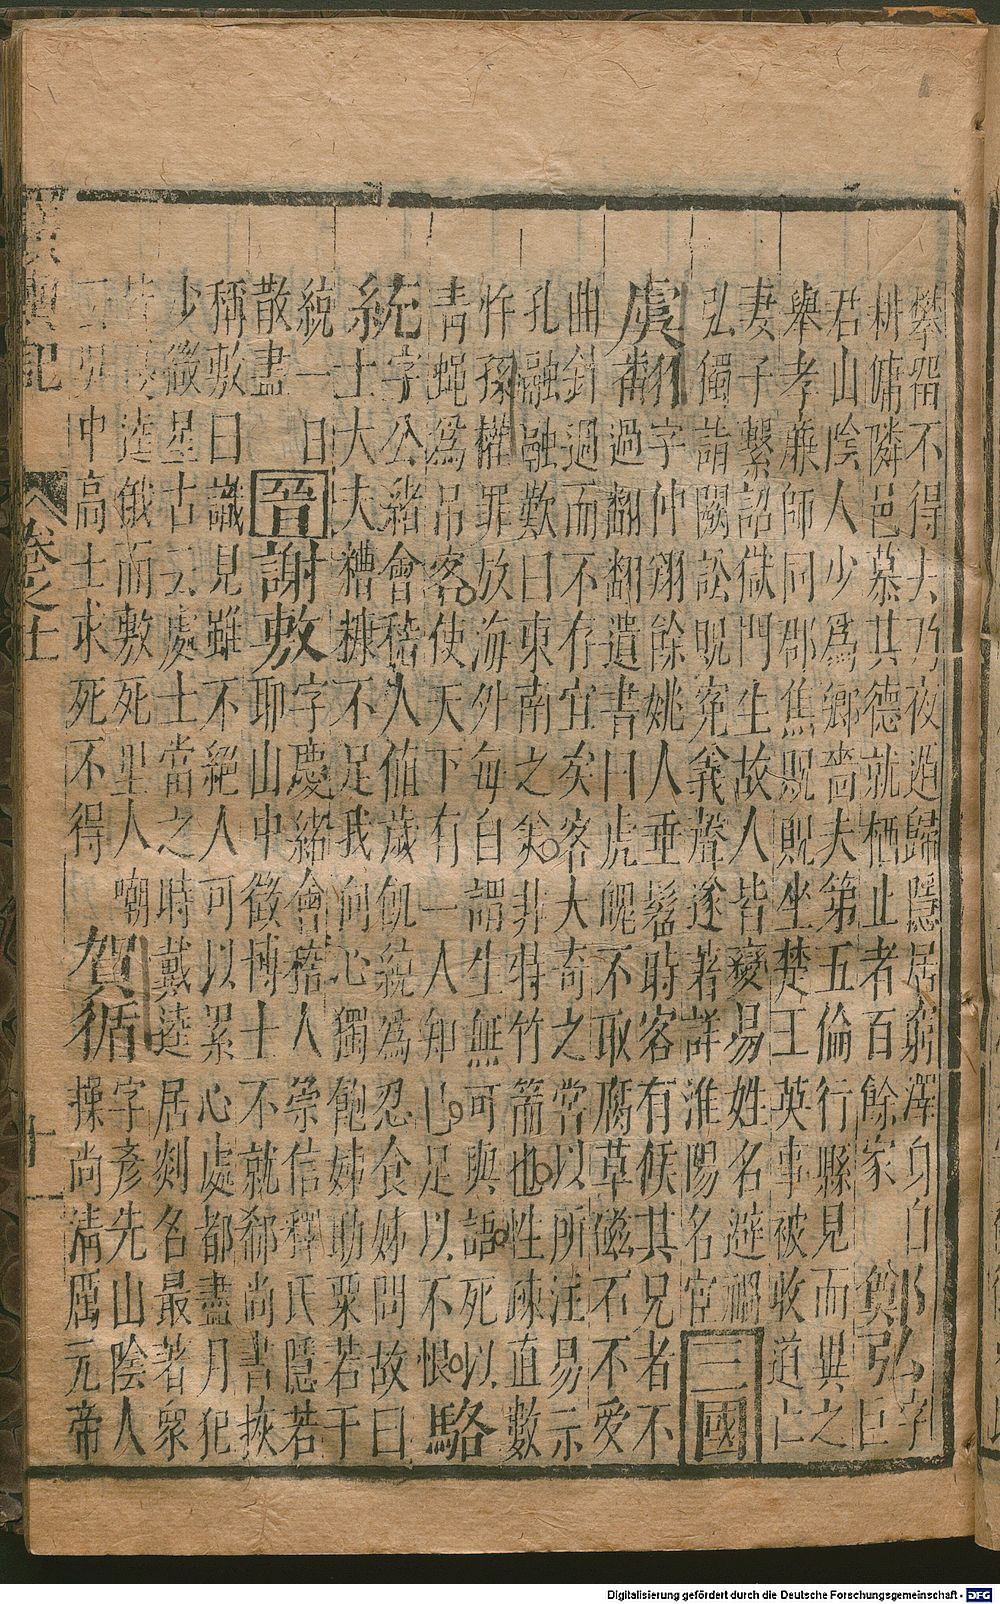 攀留不得去乃夜逅歸隱居窮澤身自
耕傭隣邑慕其德就栖止者百餘家
鄭弘字巨
君山陰人少為鄉嗇夫第五倫行縣見而異之
舉孝廉師同郡焦貺貺坐楚王英事被收道亡
妻子繫詔獄門生故人皆變易姓名避禍
弘獨詣闕訟貺寃義聲遂著詳淮陽名宦
三國
虞翻字仲翔餘姚人垂髫時客有候其兄者不
過翻翻遺書曰虎魄不取腐草磁石不受
曲針過而不存宜矣客大奇之常以所注易示
孔融融歎曰東南之美非特竹箭也性疎直數
忤孫權罪放海外每自謂生無可與語死以
青蠅為吊客使天下有一人知己足以不恨
駱
統字公緒會稽人值歲飢統為忍食姊問故曰
士大夫糟糠不足我何心獨飽姊助粟若干
統一日
散盡
晉
謝敷字慶緒會稽人崇信釋氏隱若
耶山中徵博士不就郗尚書恢
稱敷曰識見雖不絕人可以累心處都盡月犯
少微星古云處士當之時戴逵居剡名最著衆
憂逵俄而敷死星人嘲
中高士求死不得
賀循字彥先山陰人
操尚清厲元帝
卷之十
十一